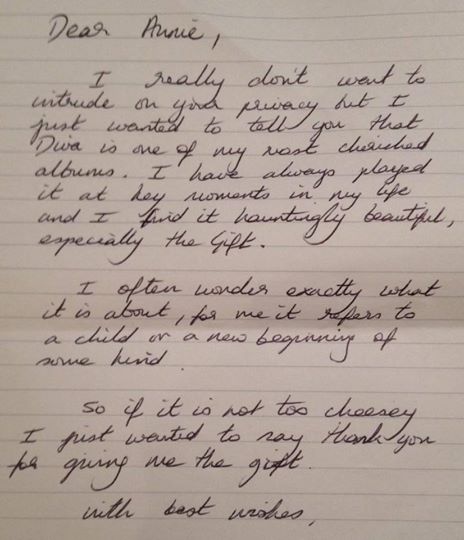 Dear Annie,
I really don't want to
intrude on your privacy but I
just wanted to tell you that
Diva is one of my most cherished
albums. I have always played
it at key moments in my life
and I find it hauntingly beautiful,
especially the Gift.
I often wonder exactly what
it is about, for me it refers to
a child or a new beginning of
some kind.
So if it is not too cheesey
I just wanted to say thank you
for giving me the gift.
with best wishes,